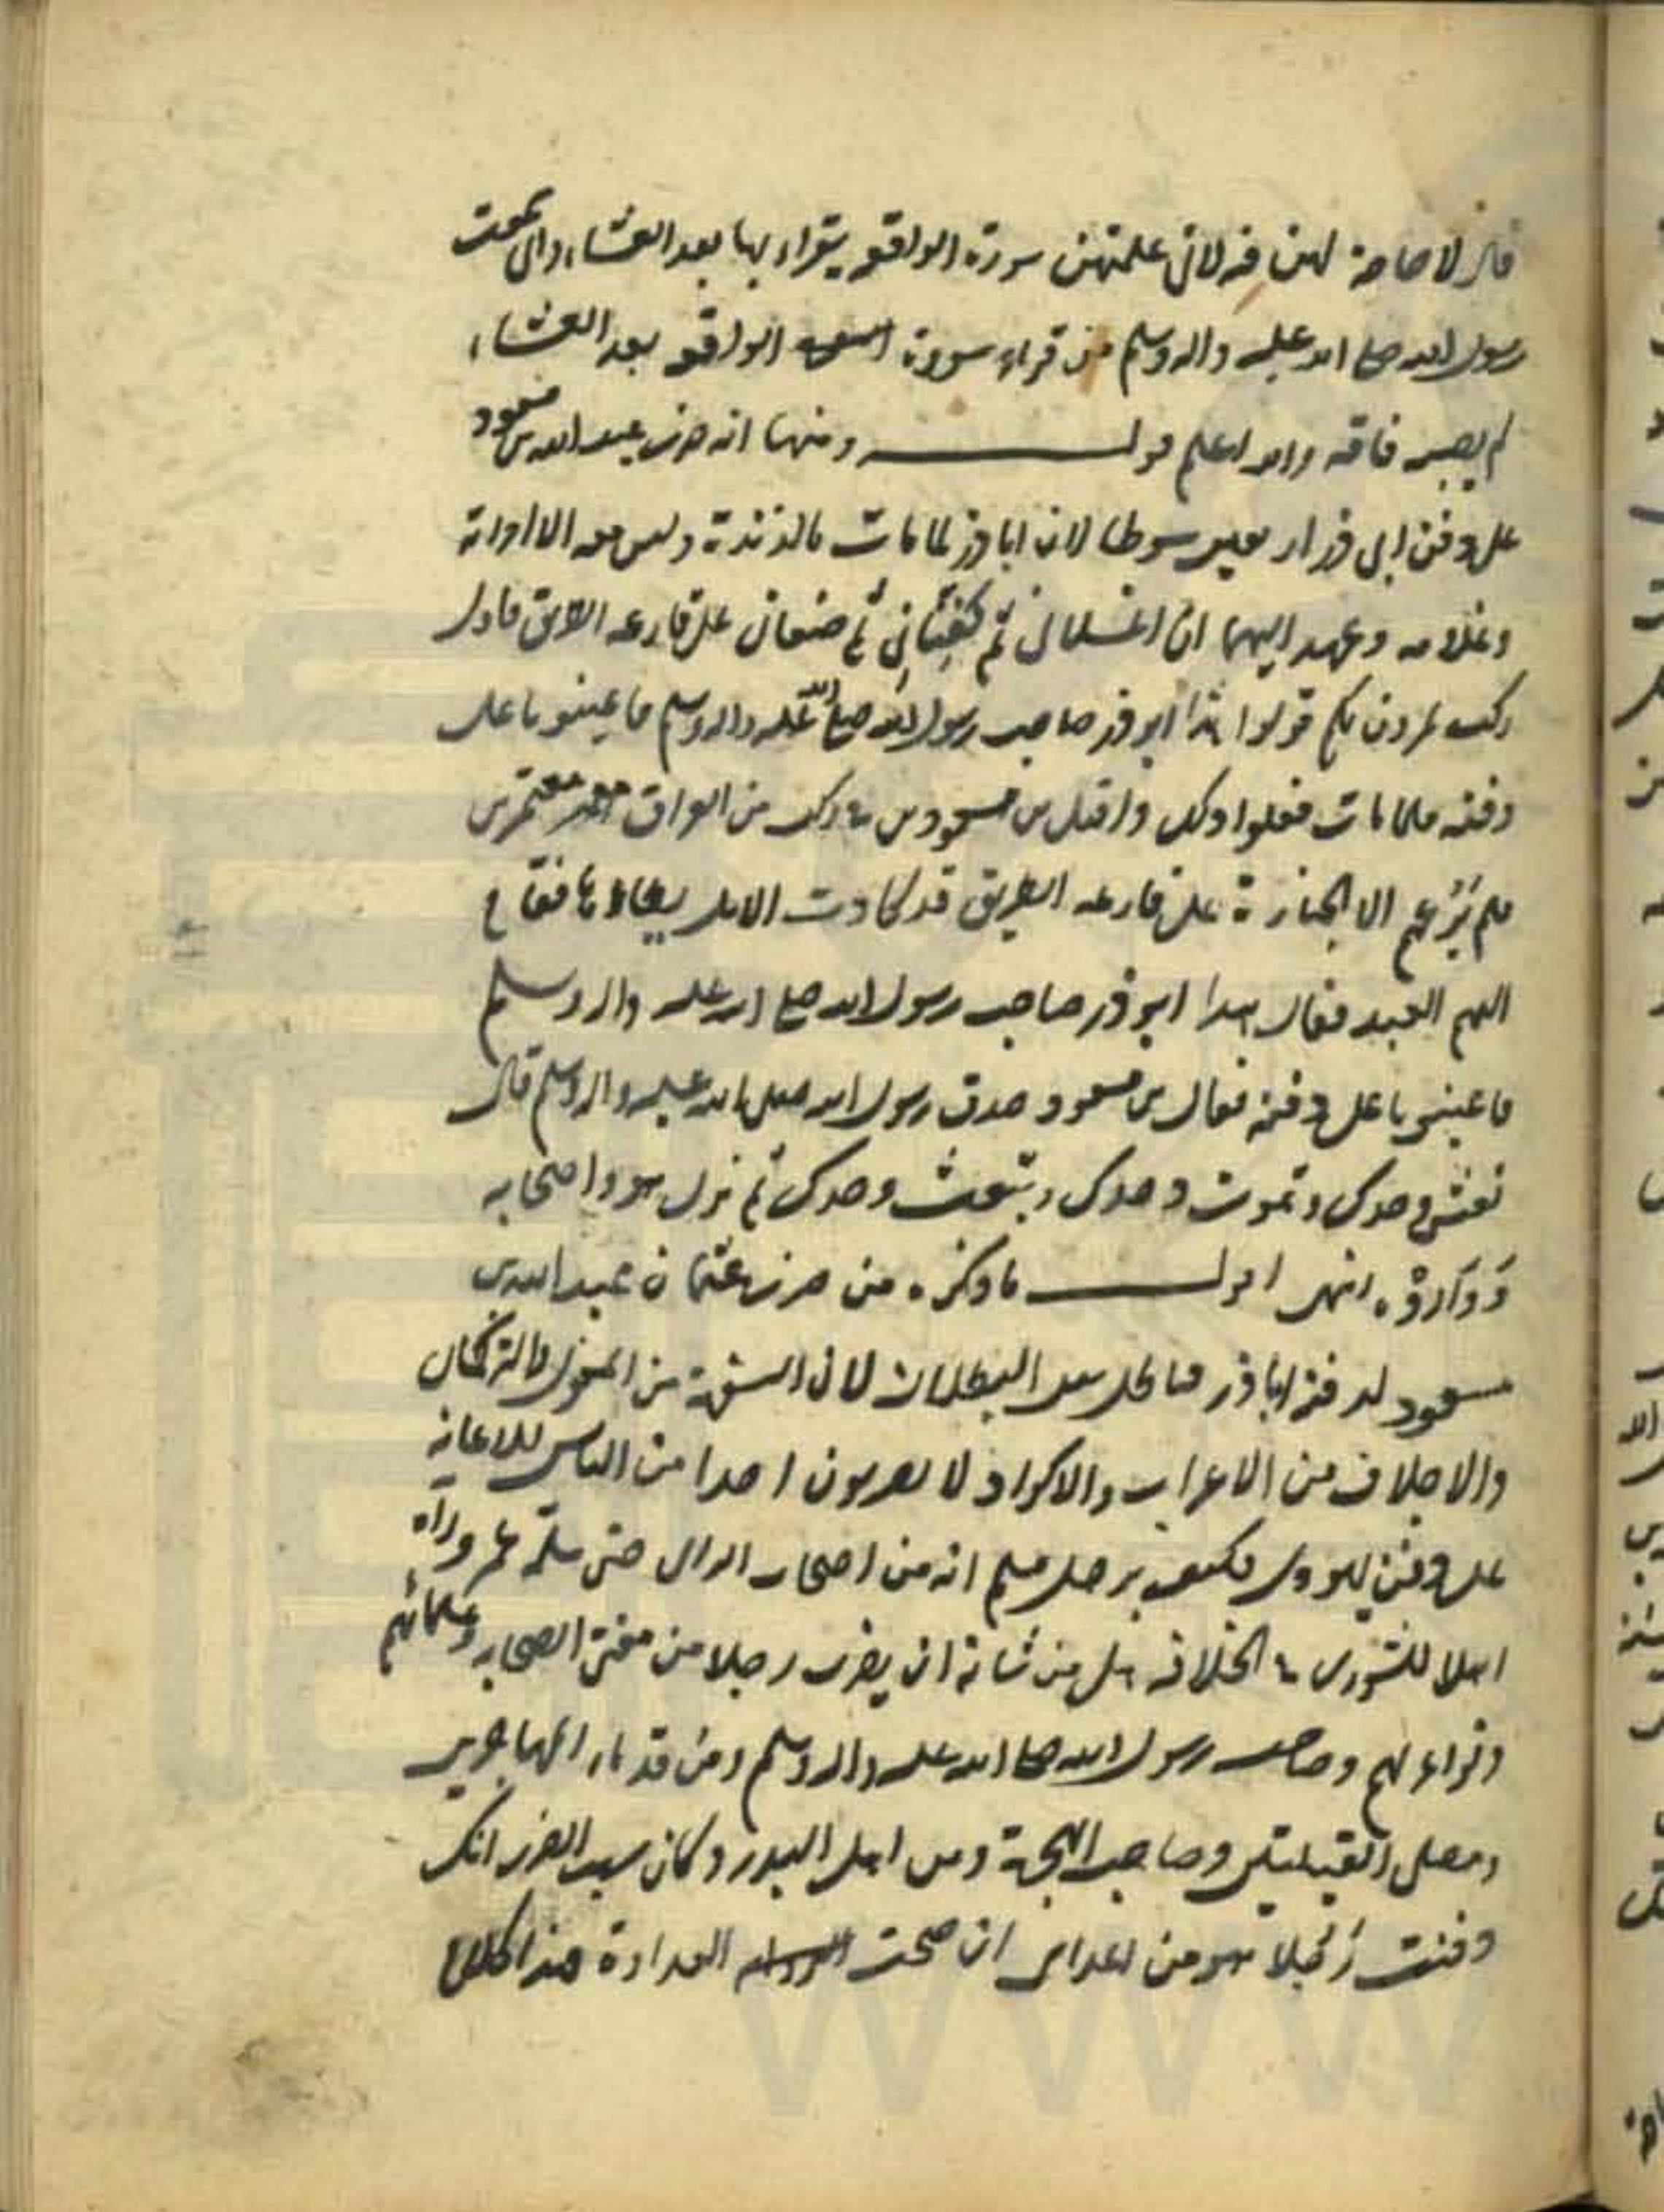 قال لا حاجة لهن فيه لانى علمتهن سورة الواقعه يقراء بها بعد العشاء وانى سمعت
رسول الله صلى الله عليه واله وسلم من قراء سورة الواقعه بعد العشاء
لم يصبه فاقه والله اعلم قوله ومنها انه ضرب عبد الله بن مسعود
على دفن ابى ذر اربعين سوطا لان اباذر لما مات بالربذة وليس معه الا امراته
وغلامه وعهد اليهما ان اغسلانى ثم كفنانى ثم ضعانى على قارعه الطريق فاول
ركب يمرون بكم قولوا هذا ابو ذر صاحب رسول الله صلى الله عليه واله وسلم فاعينونا على
دفنه فلما مات فعلوا ذلك واقبل بن مسعود فى ركب من العراق معتمرين
فلم يرعهم الا الجنازة على قارعه الطريق قد كادت الابل يطاؤها فقام
اليهم العبد فقال هذا ابو ذر صاحب رسول الله صلى الله عليه واله وسلم
فاعينونا على دفنه فقال بن مسعود صدق رسول الله صلى الله عليه واله وسلم قال
تعش وحدك وتموت وحدك وتبعث وحدك ثم نزل هو واصحابه
وَوَارَوْه انتهى اقول ما ذكره من ضرب عثمان عبد الله بن
مسعود لدفنه اباذر البطلان لان السفهة من المغول والتركمان
والاجلاف من الاعراب والاكراد لا يضربون احدا من الناس للاعانه
على دفن يهودى فكيف برجل مسلم انه من اصحاب حتى عمر وراه
اهلا للشورى و الخلافه هل من شانه ان يضرب رجلا من الصحابه وعلمائهم
وقرائهم وصاحب رسول الله صلى الله عليه واله وسلم ومن قدماء المهاجرين
ومصلى القبلتين وصاحب الهجرة ومن اهل البدر وكان سبب الضرب انك
دفنت رَجُلا هو من اعدائى ان صحت العداوة هذا